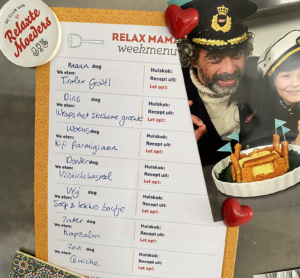 DE CLUB VAN
Relaxte
Moeders
RELAX MAMA
weekmenu
Maan dag
We eten:
Tiroler Gröstl
Huiskok:
Recept uit:
Let op!:
Dins dag
We eten:
Wraps met
Huiskok:
Recept uit:
Let op!:
Woens dag
We eten:
Kip Parmigiana
Huiskok:
Recept uit:
Let op!:
Donder dag
We eten:
Huiskok:
Recept uit:
Let op!:
Vrij dag
We eten:
Soep & lekker
Huiskok:
Recept uit:
Let op!:
Zater dag
We eten:
Kapsalon
Huiskok:
Recept uit:
Let op!:
Zon dag
We eten:
Quiche
Huiskok:
Recept uit:
Let op!: